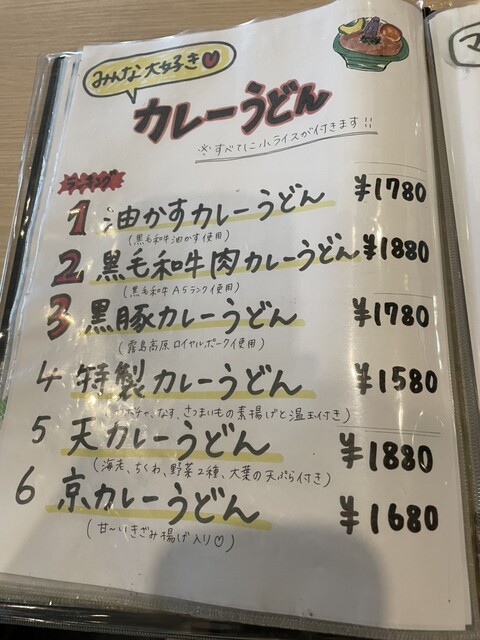 みんな大好き♥
カレーうどん
※すべてに小ライスが付きます!!
ランキング
1 油かすカレーうどん ¥1780
(黒毛和牛油かす使用)
2 黒毛和牛肉カレーうどん ¥1880
(黒毛和牛A5ランク使用)
3 黒豚カレーうどん ¥1780
(霧島高原ロイヤルポーク使用)
4 特製カレーうどん ¥1580
ボチャ、なす、さつまいもの素揚げと温玉付き)
5 天カレーうどん ¥1880
(海老、ちくわ、野菜2種、大葉の天ぷら付き)
6 京カレーうどん ¥1680
(甘〜いきざみ揚げ入り♡)
マ